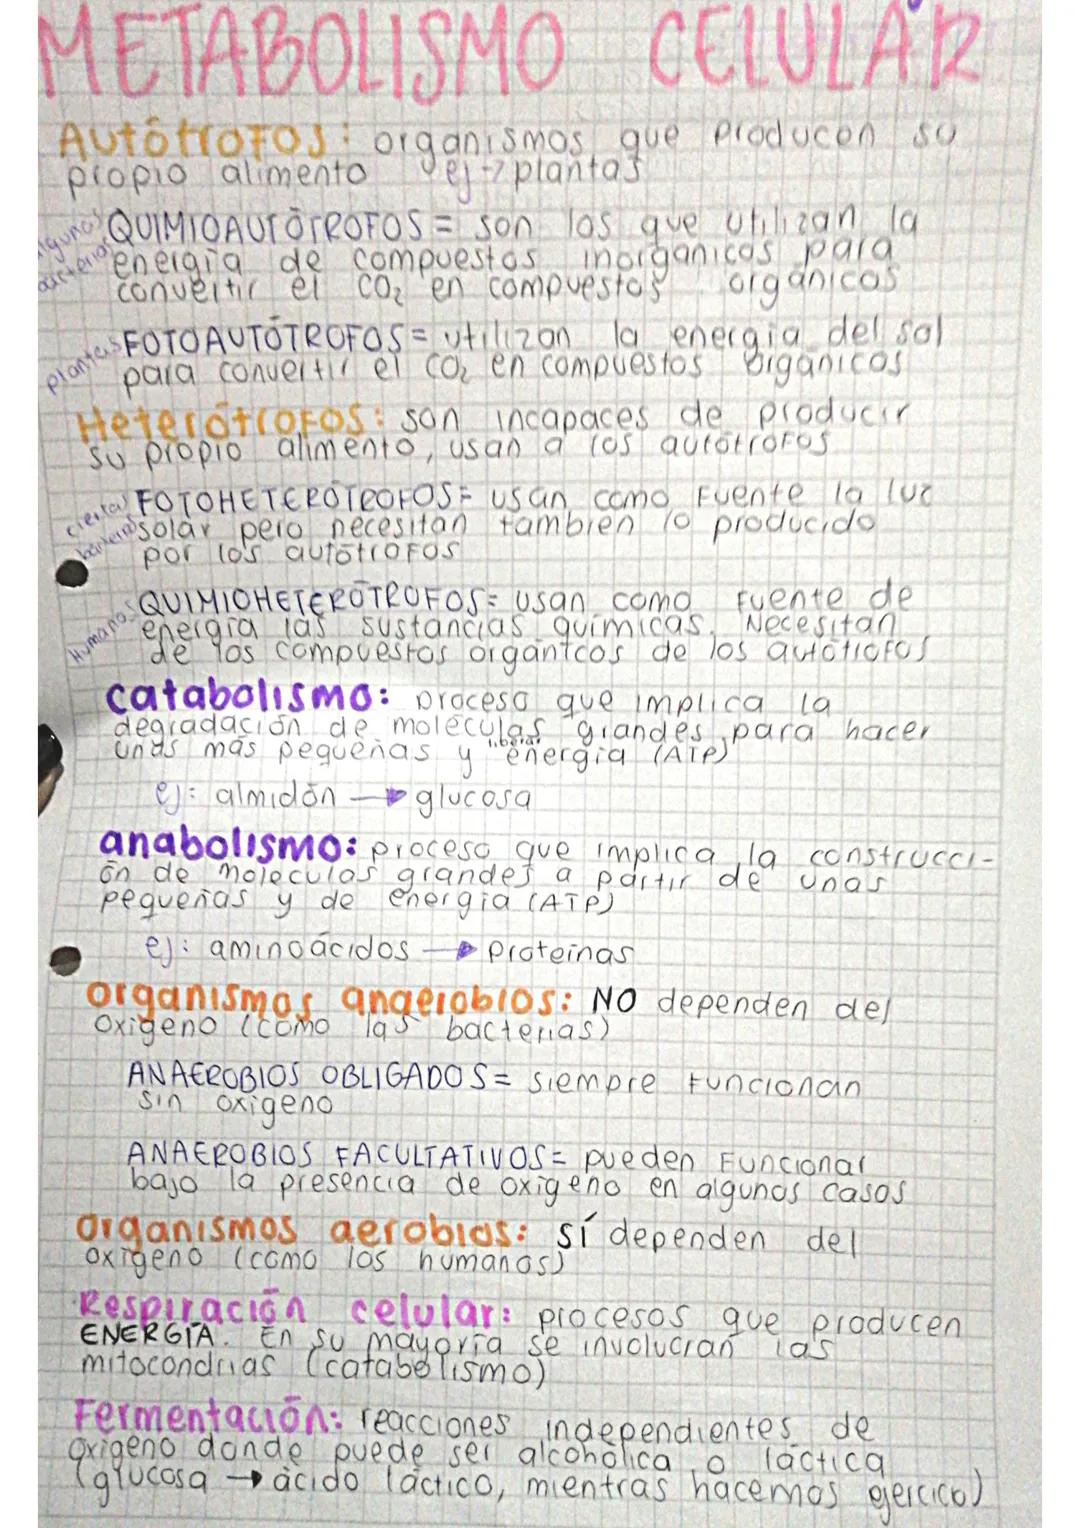 METABOLISMO CELULAR
Autótrofos: organismos que producen su
propio alimento ej → plantas
algunas bacterias
QUIMIOAUTÓTROFOS = son los que utilizan la
energía de compuestos inorgánicos para
convertir el CO₂ en compuestos orgánicos
plantas
FOTOAUTÓTROFOS = utilizan la energía del sol
para convertir el CO₂ en compuestos orgánicos
Heterótrofos: son incapaces de producir
su propio alimento, usan a los autótrofos
ciertas bacterias
FOTOHETERÓTROFOS = usan como fuente la luz
solar pero necesitan también lo producido
por los autótrofos
Humanos
QUIMIOHETERÓTROFOS = usan como fuente de
energía las sustancias químicas. Necesitan
de los compuestos orgánicos de los autótrofos
catabolismo: proceso que implica la
degradación de moléculas grandes para hacer
unas más pequeñas y "liberar" energía (ATP)
ej: almidón → glucosa
anabolismo: proceso que implica la construcci-
ón de moléculas grandes a partir de unas
pequeñas y de energía (ATP)
ej: aminoácidos → proteínas
organismos anaerobios: NO dependen del
oxígeno (como las bacterias)
ANAEROBIOS OBLIGADOS = siempre funcionan
sin oxígeno
ANAEROBIOS FACULTATIVOS = pueden funcionar
bajo la presencia de oxígeno en algunos casos
organismos aerobios: sí dependen del
oxígeno (como los humanos)
Respiración celular: procesos que producen
ENERGÍA. En su mayoría se involucran las
mitocondrias (catabolismo)
Fermentación: reacciones independientes de
oxígeno donde puede ser alcohólica o láctica
(glucosa → ácido láctico, mientras hacemos ejercicio)